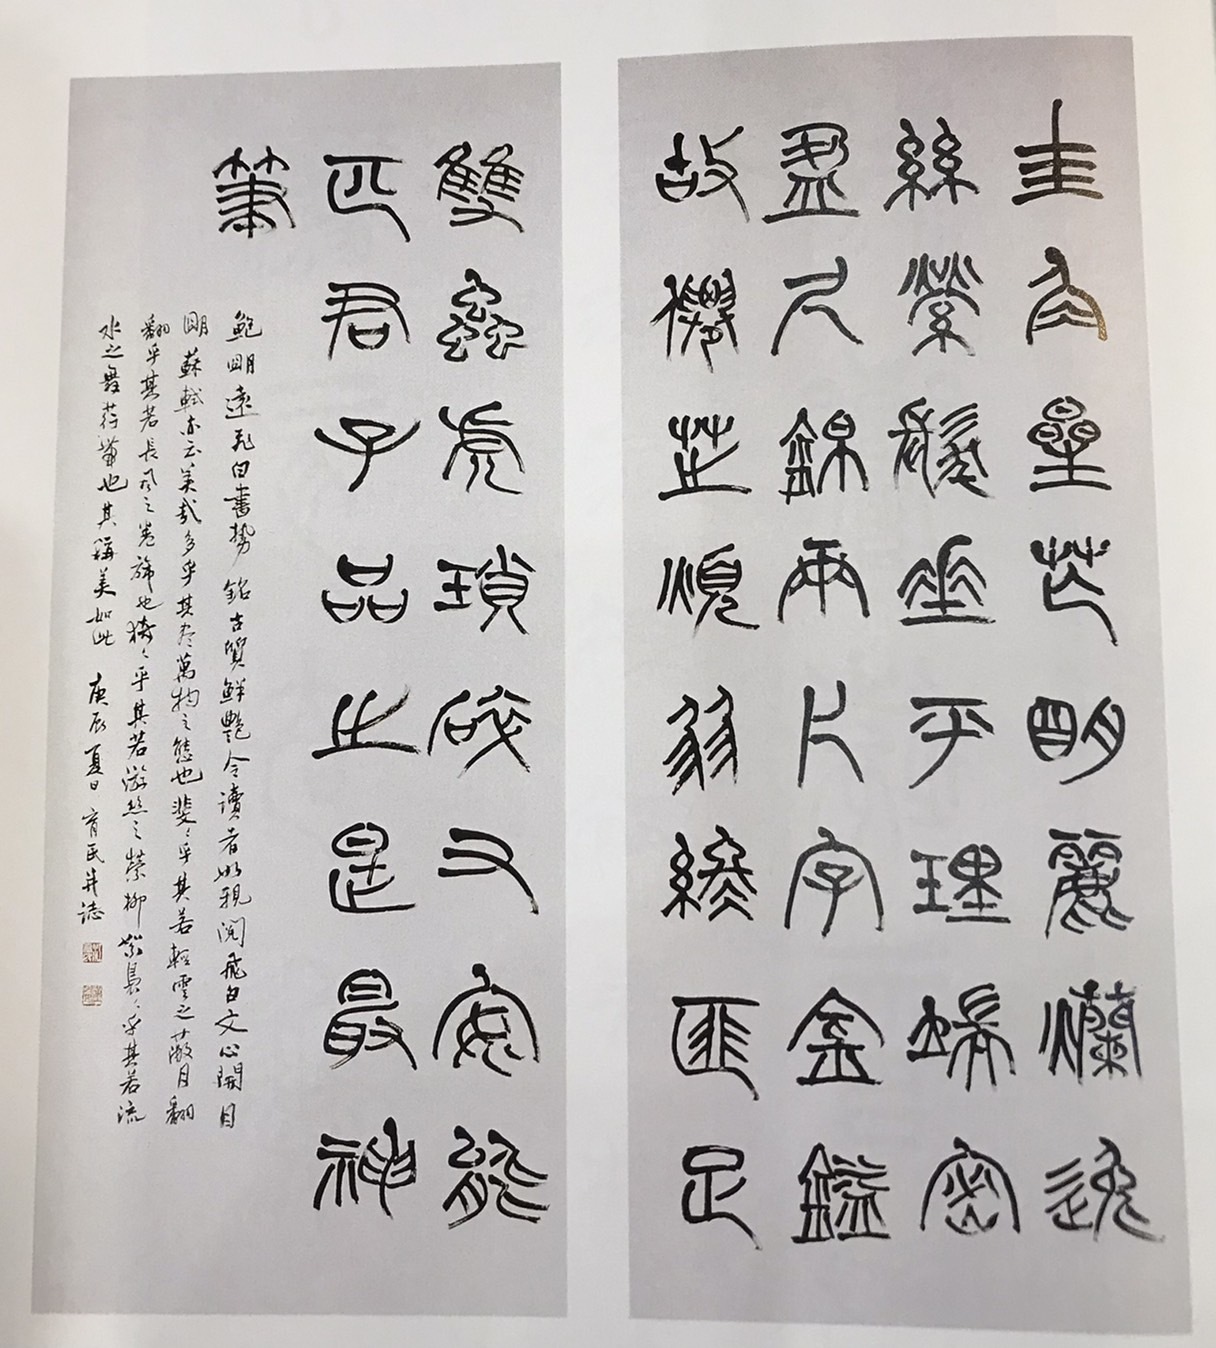 圭角星芒明麗爛逸
絲縈髮垂平理端密
盈尺錦兩片字金鎰
故僊芝煩弱縿匪足
雙蟲虎瑣碎又安能
匹君子品之是最神
筆
鮑明遠飛白書勢銘古質鮮艷令讀者如親閱飛白文心開目
明蘇軾亦云美哉多乎其盡萬物之態也斐〻乎其若輕雲之蔽月翻
翻乎其若長風之卷旆也猗〻乎其若游絲之縈柳絮裊〻乎其若流
水之舞荇帶也其稱美如此 庚辰夏日 育民并誌